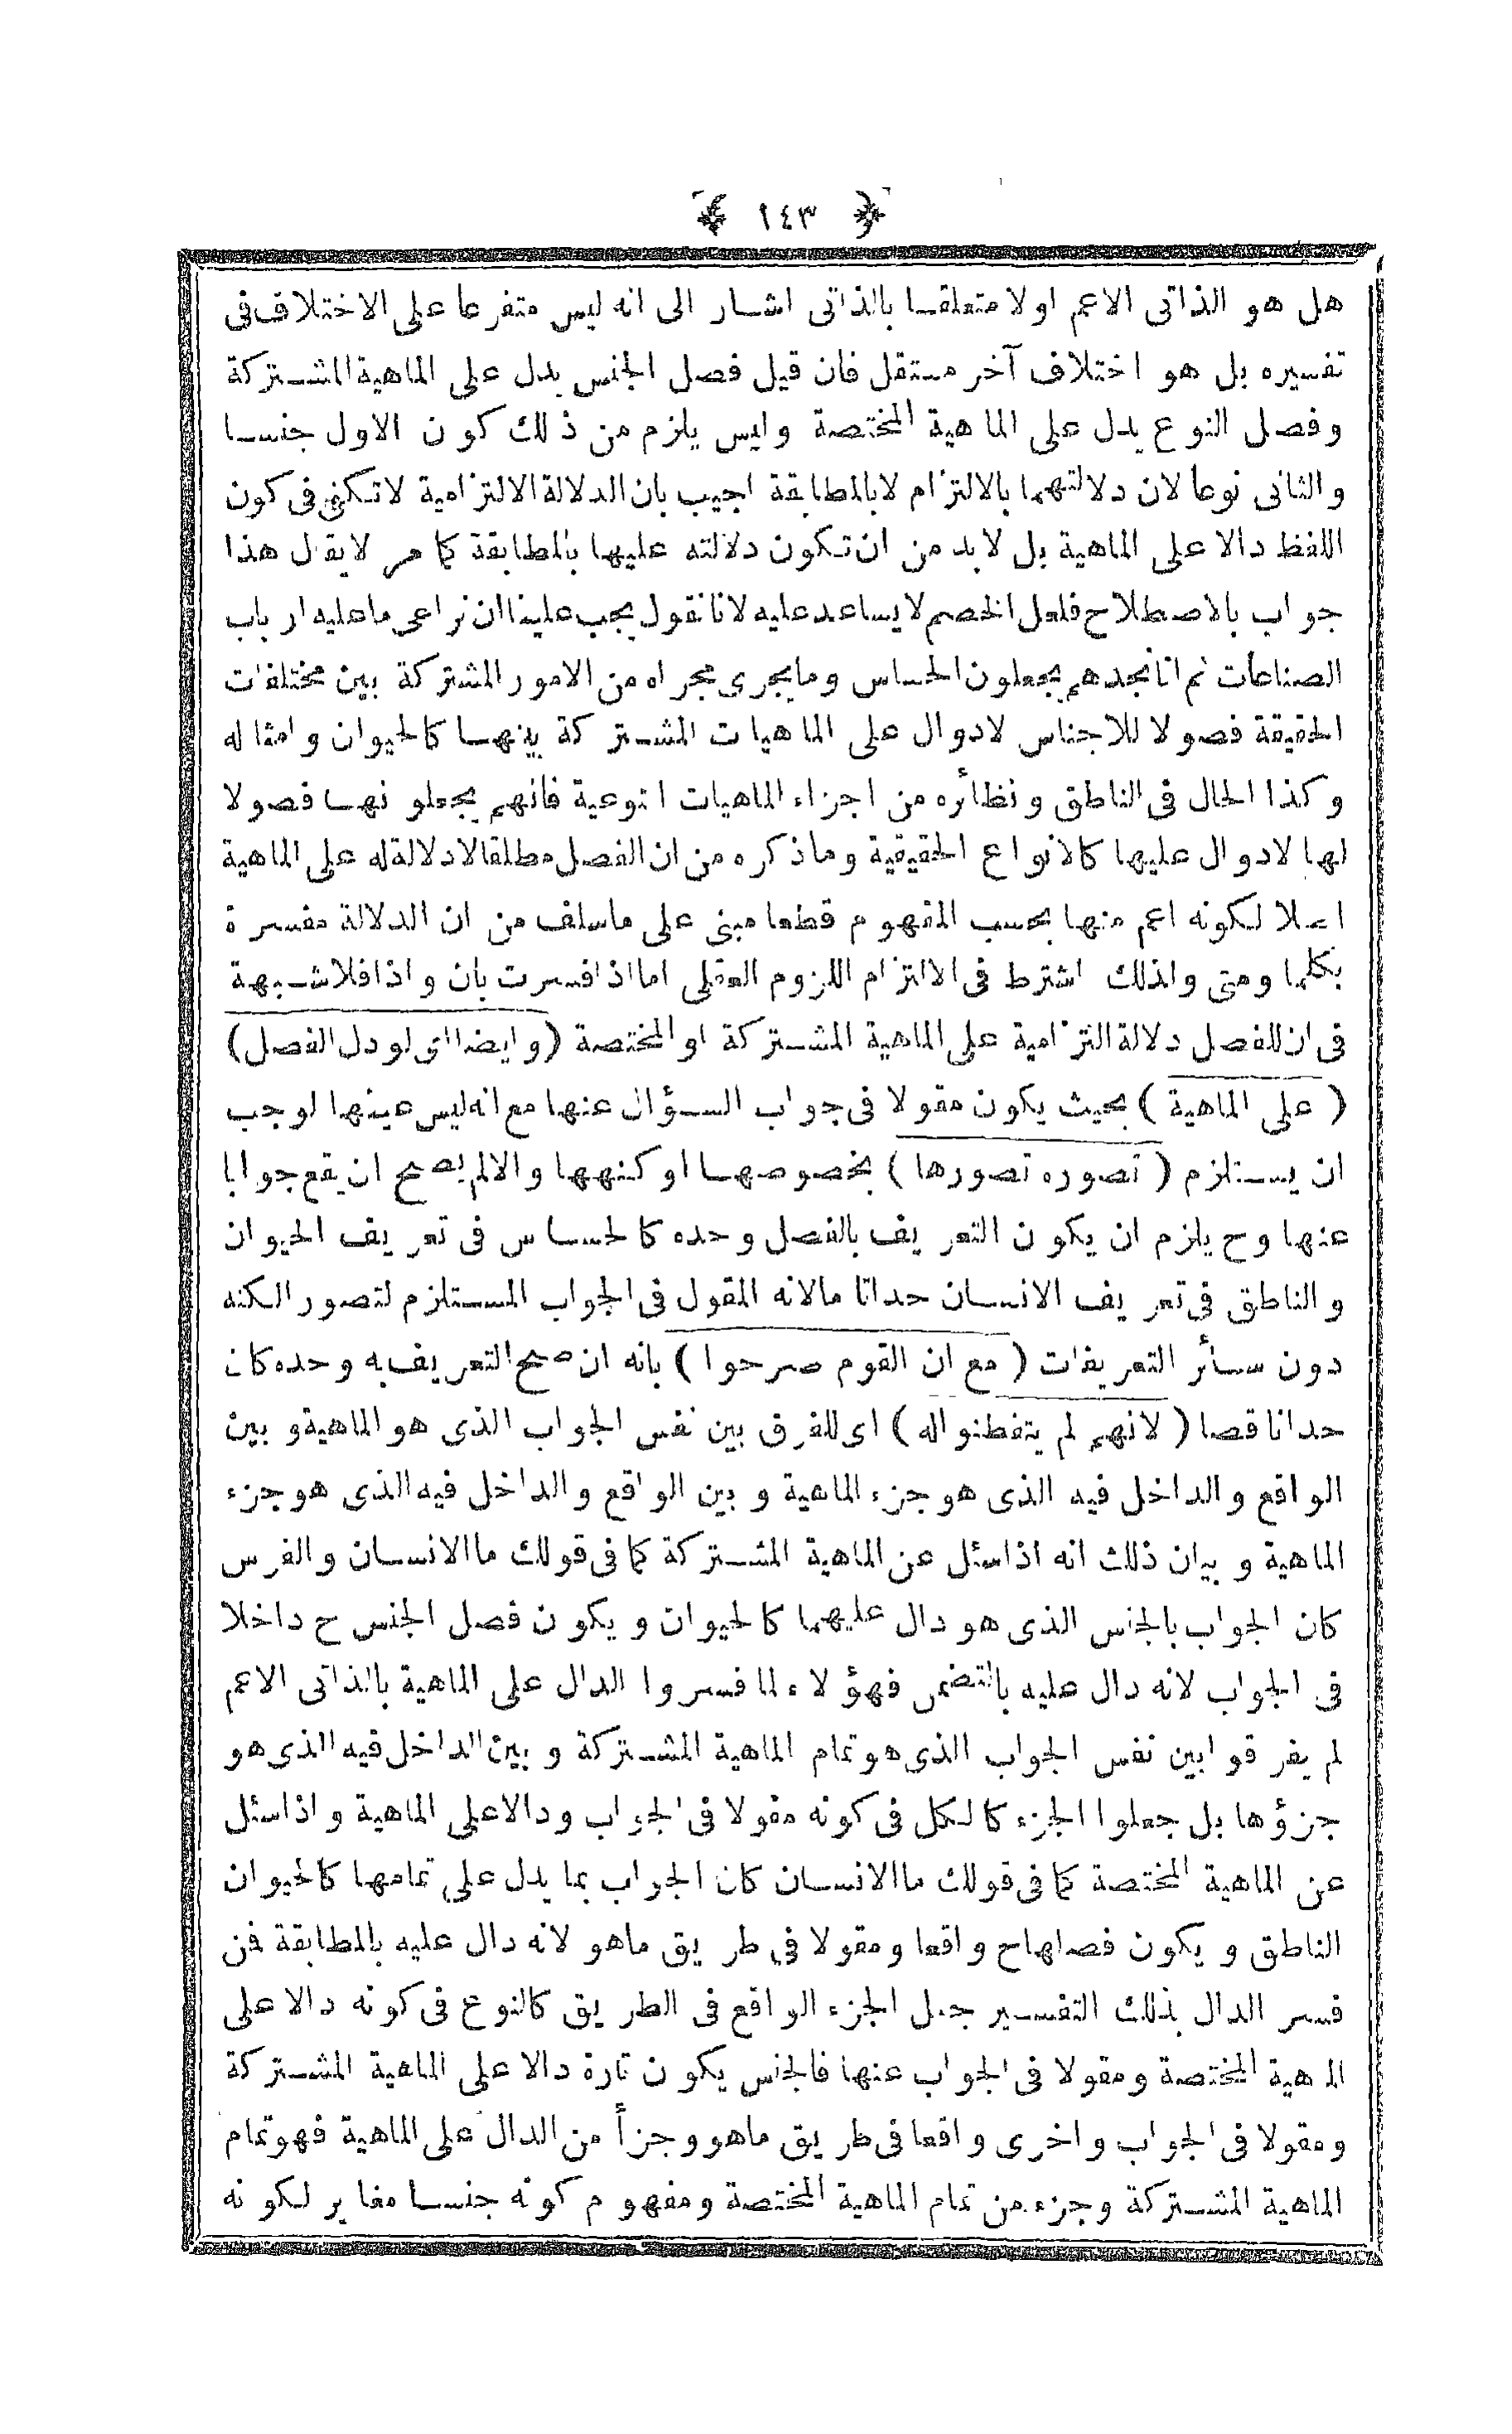 ﴿ ١٤٣ ﴾
هل هو الذاتى الاعم او لا متعلقا بالذاتى اشار الى انه ليس متفرعا على الاختلاف فى
تفسيره بل هو اختلاف آخر مستقل فان قيل فصل الجنس يدل على الماهية المشتركة
وفصل النوع يدل على الماهية المختصة وليس يلزم من ذلك كون الاول جنسا
والثانى نوعا لان دلالتهما بالالتزام لا بالمطابقة اجيب بان الدلالة الالتزامية لا تكفى فى كون
اللفظ دالا على الماهية بل لا بد من ان تكون دلالته عليها بالمطابقة كما مر لا يقال هذا
جواب بالاصطلاح فلعل الخصم لا يساعد عليه لانا نقول يجب علينا ان نراعى ما عليه ارباب
الصناعات ثم انا نجدهم يجعلون الحساس وما يجرى مجراه من الامور المشتركة بين مختلفات
الحقيقة فصولا للاجناس لا دوال على الماهيات المشتركة بينها كالحيوان وامثاله
وكذا الحال فى الناطق ونظائره من اجزاء الماهيات النوعية فانهم يجعلونها فصولا
لها لا دوال عليها كالانواع الحقيقية وما ذكره من ان الفصل مطلقا لا دلالة له على الماهية
اصلا لكونه اعم منها بحسب المفهوم قطعا مبنى على ما سلف من ان الدلالة مفسرة
بكلما ومتى ولذلك اشترط فى الالتزام اللزوم العقلى اما اذا فسرت بان واذا فلا شبهة
فى ان للفصل دلالة التزامية على الماهية المشتركة او المختصة (وايضا اى لو دل الفصل)
(على الماهية) بحيث يكون مقولا فى جواب السؤال عنها مع انه ليس عينها لوجب
ان يستلزم (تصوره تصورها) بخصوصها او كنهها والا لم يصح ان يقع جوابا
عنها وح يلزم ان يكون التعريف بالفصل وحده كالحساس فى تعريف الحيوان
والناطق فى تعريف الانسان حدا تاما لانه المقول فى الجواب المستلزم لتصور الكنه
دون سائر التعريفات (مع ان القوم صرحوا) بانه ان صح التعريف به وحده كان
حدا ناقصا (لانهم لم يتفطنوا له) اى للفرق بين نفس الجواب الذى هو الماهية وبين
الواقع والداخل فيه الذى هو جزء الماهية وبين الواقع والداخل فيه الذى هو جزء
الماهية وبيان ذلك انه اذا سئل عن الماهية المشتركة كما فى قولك ما الانسان والفرس
كان الجواب بالجنس الذى هو دال عليهما كالحيوان ويكون فصل الجنس ح داخلا
فى الجواب لانه دال عليه بالتضمن فهؤلاء لما فسروا الدال على الماهية بالذاتى الاعم
لم يفرقوا بين نفس الجواب الذى هو تمام الماهية المشتركة وبين الداخل فيه الذى هو
جزؤها بل جعلوا الجزء كالكل فى كونه مقولا فى الجواب ودالا على الماهية واذا سئل
عن الماهية المختصة كما فى قولك ما الانسان كان الجواب بما يدل على تمامها كالحيوان
الناطق ويكون فصلها ح واقعا ومقولا فى طريق ما هو لانه دال عليه بالمطابقة فمن
فسر الدال بذلك التفسير جعل الجزء الواقع فى الطريق كالنوع فى كونه دالا على
الماهية المختصة ومقولا فى الجواب عنها فالجنس يكون تارة دالا على الماهية المشتركة
ومقولا فى الجواب واخرى واقعا فى طريق ما هو وجزأ من الدال على الماهية فهو تمام
الماهية المشتركة وجزء من تمام الماهية المختصة ومفهوم كونه جنسا مغاير لكونه